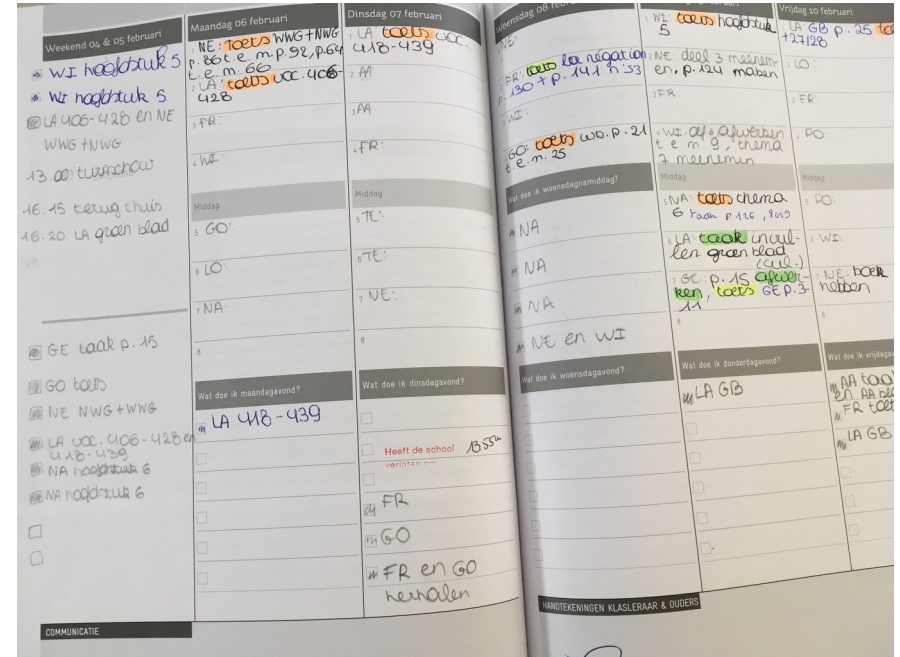 Weekend 04 & 05 februari
WI hoofdstuk 5
WI hoofdstuk 5
LA 406-428 en NE
WWG +NWG
13.00 turnschow
16.15 terug thuis
16.20 LA groen blad
GE taak p. 15
GO toets
NE NWG+WWG
LA voc. 406-428 en
418-439
NA hoofdstuk 6
NA hoofdstuk 6
COMMUNICATIE
Maandag 06 februari
1 NE: Toets WWG+NWG
p. 86 t.e.m. p. 92, p. 64
t.e.m. 66
2 LA: toets voc. 406-
428
3 FR:
4 WI:
Middag
5 GO:
6 LO:
7 NA:
8
Wat doe ik maandagavond?
LA 418-439
Dinsdag 07 februari
1 LA toets voc.
418-439
2 AA:
3 AA:
4 FR:
Middag
5 TE:
6 TE:
7 NE:
8
Wat doe ik dinsdagavond?
Heeft de school
verlaten om
FR
GO
FR en GO
herhalen
Woensdag 08
NE:
FR: toets la négation
p. 130 + p. 141 n° 53
WI:
GO: toets wo. p. 21
t.e.m. 25
Wat doe ik woensdagnamiddag?
NA
NA
NA
NE en WI
Wat doe ik woensdagavond?
HANDTEKENINGEN KLASLERAAR & OUDERS
1 WI: toets hoofdstuk
5
NE: deel 3 meenem-
en, p. 124 maken
3 FR
WI: afwerken
t e m 9, thema
7 meenemen
Middag
5 NA: toets thema
6 taak p 126
6 LA: taak invul-
len groen blad
(cul.)
7 GE: p. 15 afwer-
ken, toets GE p. 3-
11
8
Wat doe ik donderdagavond?
LA GB
Vrijdag 10 februari
LA GB p. 25
+27/28
LO:
3 FR:
4 PO:
Middag
5 PO:
6 WI:
7 NE: boek
hebben
8
Wat doe ik vrijdagav
AA taa
en AA
FR toet
LA GB